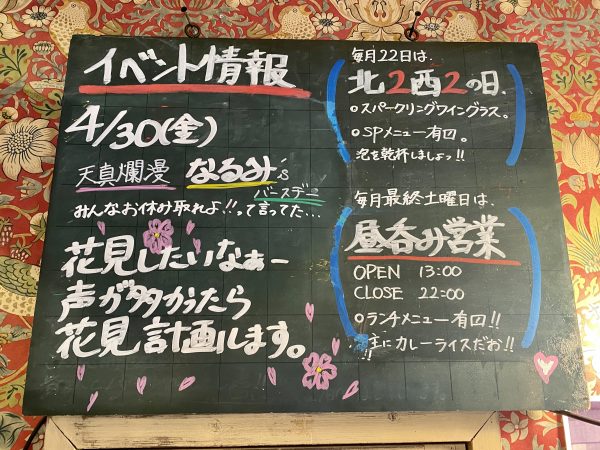 イベント情報
4/30(金)
天真爛漫 なるみ's
バースデー
みんなお休み取れよ!!って言ってた…
花見したいなぁー
声が多かったら
花見計画します。
毎月22日は、
北2西2の日、
○スパークリングワイングラス。
○SPメニュー有回。
泡を乾杯しましょっ!!
毎月最終土曜日は、
昼呑み営業
OPEN 13:00
CLOSE 22:00
○ランチメニュー有回!!
主にカレーライスだお!!